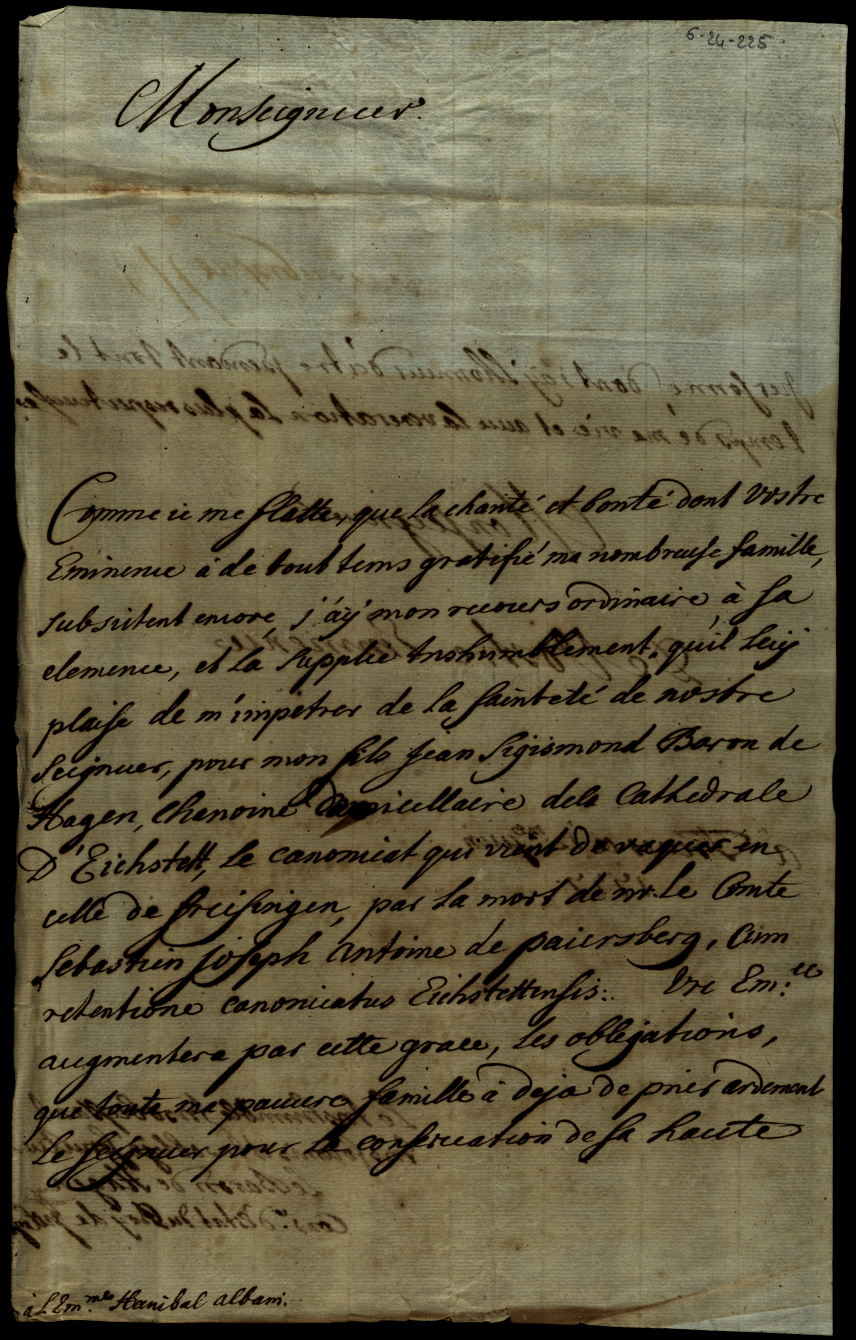 6-24-225
Monseigneuer.
Comme ie me flatte, que la charité et bonté dont Vostre
Eminence à de tout tems gratifié ma nombreuse famille,
subsistent encore, j'aÿ mon recours ordinaire à sa
clemence, et la supplie treshumblement, qu'il luy
plaise de m'impetrer de la sainteté de nostre
seigneuer, pour mon fils Jean Sigismond Baron de
Hagen, Chanoine Domicellaire dela Cathedrale
D'Eichstett, le canonicat qui vient de vaquer en
celle de freisingen, par la mort de mr. le Comte
Sebastien Joseph Antoine de paiersberg, Cum
retentione canonicatus Eichstettensis. Vre Em.ce
augmentera par cette grace, les obligations,
que toute ma pauvre famille à deja de prier ardement
le seigneuer pour la conservation de sa haute
à L'Em.me Hanibal Albani.